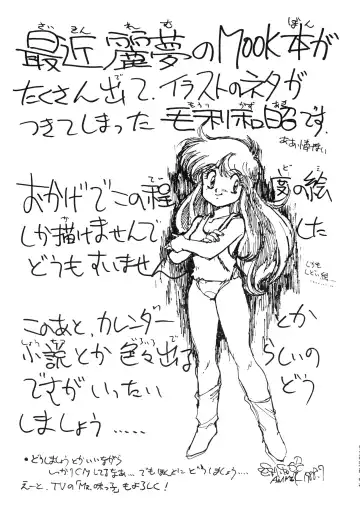 最近麗夢のMOOK本が
たくさん出て、イラストのネタが
つきてしまった毛利和昭です。
おかげでこの程度の絵
しか描けませんでした
どうもすいませ
このあと、カレンダーとか
小説とか色々出るらしいの
ですがいったいどう
しましょう.....
•どうしましょうとかいいながら
しっかりCMしてるなあ...でもほんとにどうしましょう....
えーと、TVの「Mr.味っ子」もよろしく!